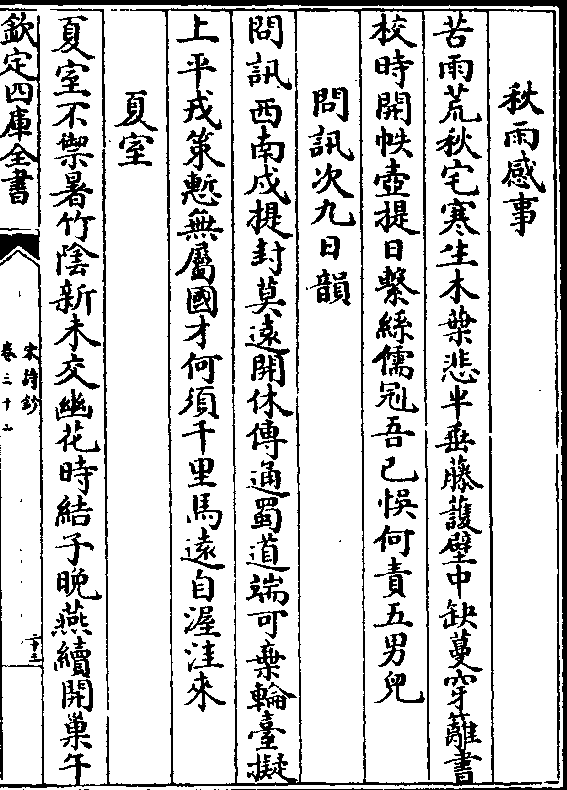 秋雨感事
苦雨荒秋宅寒生木葉悲半垂藤護壁中缺蔓穿籬書
校時開帙壺提日繫絲儒冠吾已悞何責五男兒
問訊次九日韻
問訊西南戍提封莫遠開休傳通蜀道端可棄輪臺擬
上平戎策慙無屬國才何須千里馬遠自渥洼來
夏室
夏室不禦暑竹陰新未交幽花時結子晚燕續開巢午
欽定四庫全書
宋詩鈔
卷三十
二十三